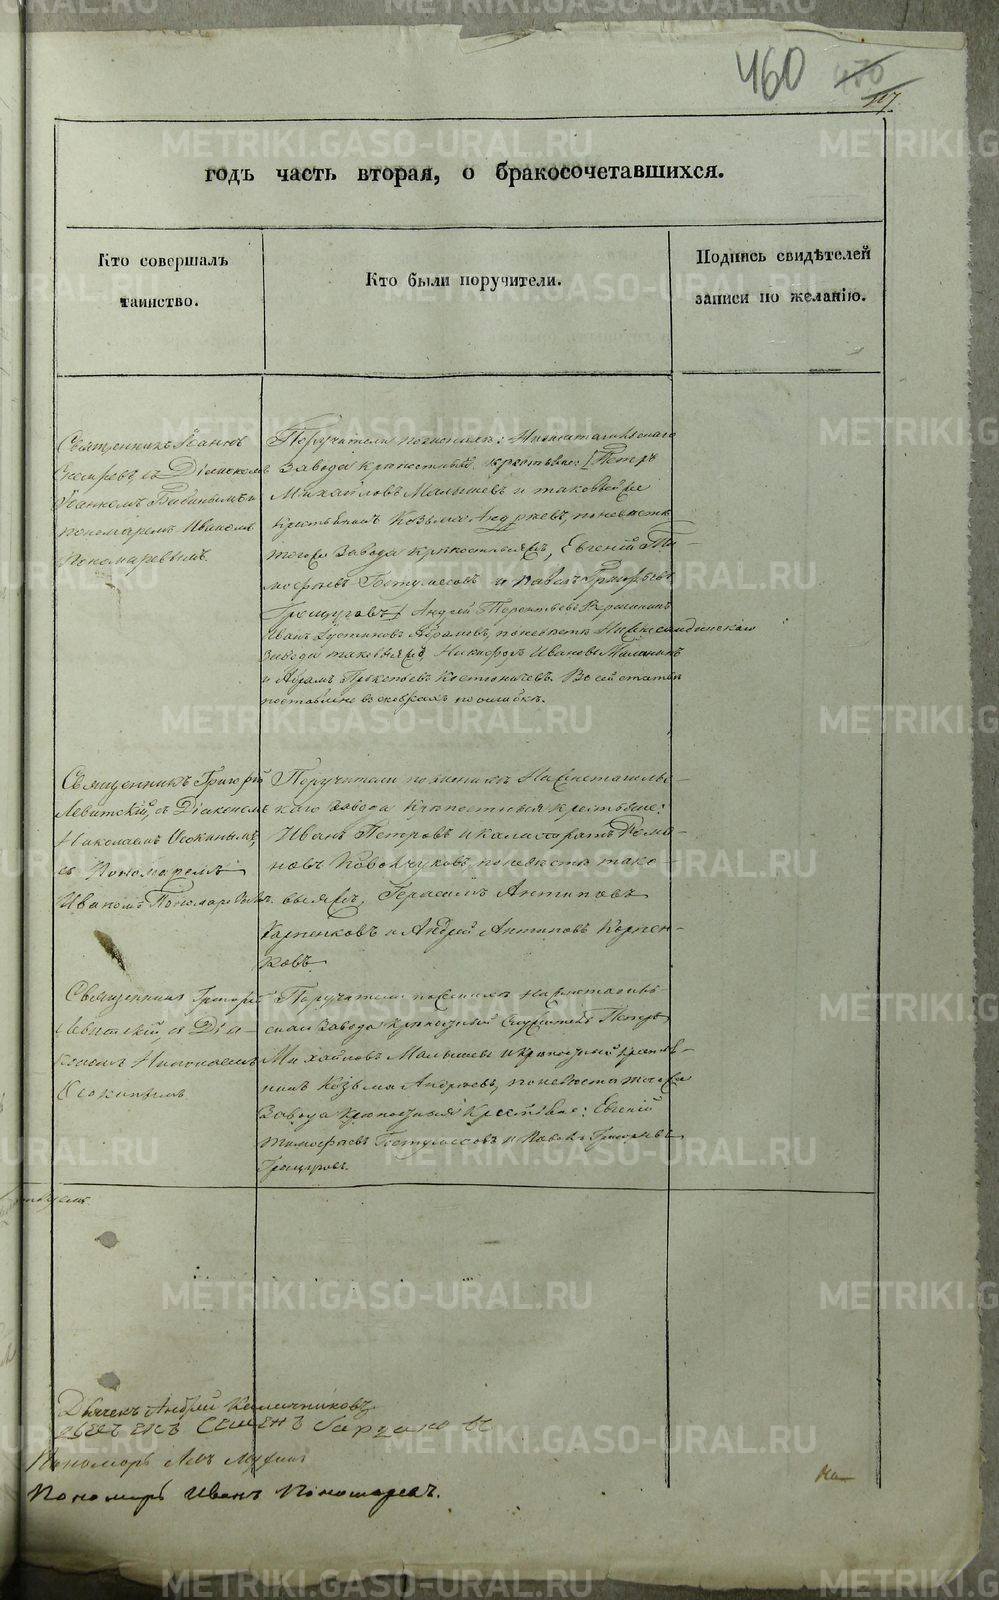 460 470
117.
годъ часть вторая, о бракосочетавшихся.
Кто совершалъ
таинство.
Кто были поручители.
Подпись свидѣтелей
записи по желанію.
Священникъ Іаннъ
съ Діакономъ
Іоанномъ Бабинымъ и
пономаремъ Иваномъ
Пономаревымъ.
Поручители по женихѣ: Нижнетагильскаго
Завода крѣпостный крестьяне: [Петръ
Михайловъ Малышевъ и таковый же
крестьянинъ Козьма Андреевъ, по невѣстѣ
тогоже Завода крѣпостныежъ, Евгеній Ти-
моѳеевъ и Павелъ Григорьевъ
] Андрей Терентьевъ
Иванъ Абрамовъ, по невѣстѣ Нижнесалдинскаго
Завода таковыежъ, Никифоръ Ивановъ
и Абрамъ Прокопьевъ Костюничевъ. Въ сей статьѣ
поставлено въ скобкахъ по ошибкѣ.
Священникъ Григорій
Левитскій, съ Діакономъ
Николаемъ Осокинымъ,
съ Пономаремъ
Иваномъ Пономаревымъ.
Поручители по женихѣ Нижнетагильс-
каго завода крѣпостныя крестьяне:
Иванъ Петровъ и Калистратъ Рома-
новъ Ковальчуковъ, по невѣстѣ тако-
выяжъ, Герасимъ Антиповъ
Карпенковъ и Андрей Антиповъ Карпен-
ковъ.
Священникъ Григорій
Левитскій, съ Діа-
кономъ Николаемъ
Осокинымъ
Поручители по женихѣ Нижнетагиль-
скаго Завода крѣпостный Служитель Петръ
Михайловъ Малышевъ и крѣпостный крестья-
нинъ Козьма Андреевъ, по невѣстѣ тогоже
Завода крѣпостныя Крестьяне: Евгеній
Тимоѳеевъ и Павелъ Григорьевъ
Дьячекъ Андрей Калачниковъ
дьячекъ Семенъ
Пономарь Левъ
Пономарь Иванъ Пономаревъ.
METRIKI.GASO-URAL.RU